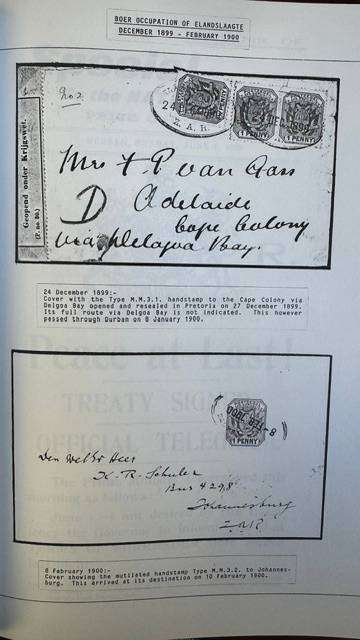 BOER OCCUPATION OF ELANDSLAAGTE
DECEMBER 1899 - FEBRUARY 1900
No 2
24
Z.A.R.
DEC 1899
1 PENNY
1 PENNY
Geopend onder Krijgswet.
(P. no. 80.)
Mrs F. P. van Gass
D Adelaide
Cape Colony
via Delagoa Bay.
24 December 1899:-
Cover with the Type M.M.3.1. handstamp to the Cape Colony via
Delgoa Bay opened and resealed in Pretoria on 27 December 1899.
Its full route via Delgoa Bay is not indicated. This however
passed through Durban on 8 January 1900.
8 FEB 1900
1 PENNY
Den WelEd Heer
K. R. Schuler
Bus 4298
Johannesburg
Z.A.R
8 February 1900:-
Cover showing the mutilated handstamp Type M.M.3.2. to Johannes-
burg. This arrived at its destination on 10 February 1900.